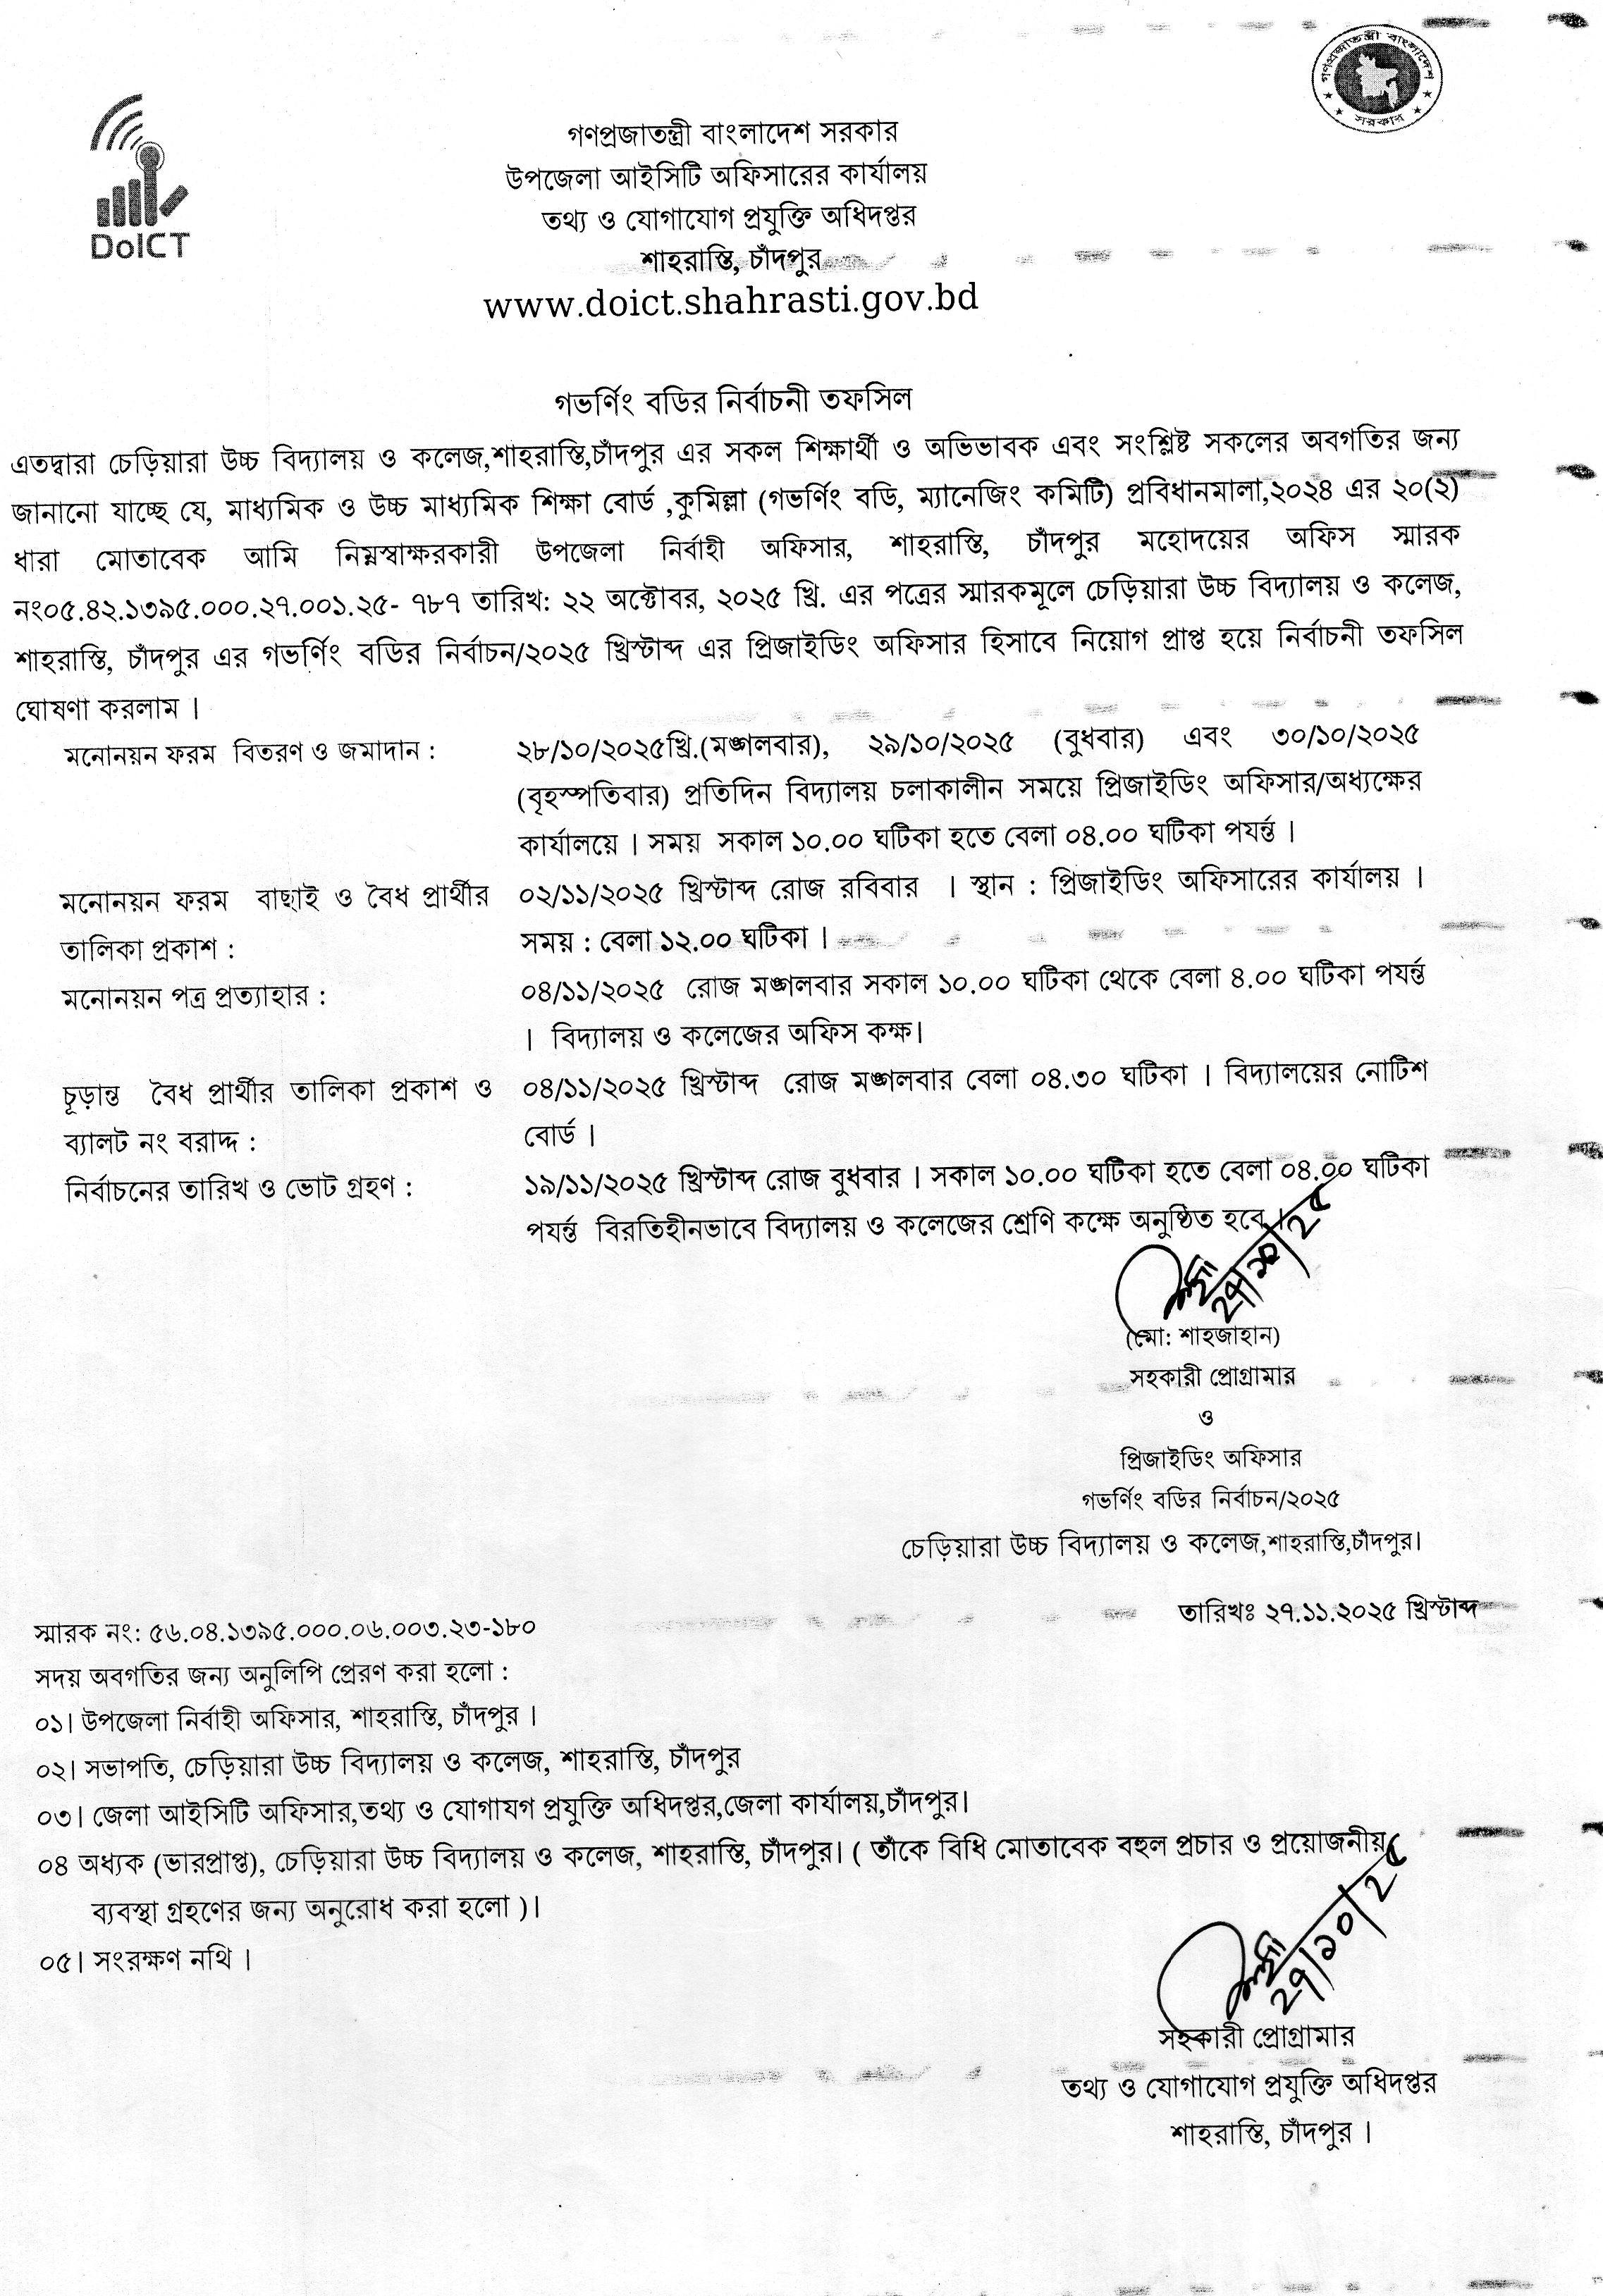 গণপ্রজাতন্ত্রী বাংলাদেশ
সরকার
DoICT
গণপ্রজাতন্ত্রী বাংলাদেশ সরকার
উপজেলা আইসিটি অফিসারের কার্যালয়
তথ্য ও যোগাযোগ প্রযুক্তি অধিদপ্তর
শাহরাস্তি, চাঁদপুর
www.doict.shahrasti.gov.bd
গভর্ণিং বডির নির্বাচনী তফসিল
এতদ্বারা চেড়িয়ারা উচ্চ বিদ্যালয় ও কলেজ,শাহরাস্তি,চাঁদপুর এর সকল শিক্ষার্থী ও অভিভাবক এবং সংশ্লিষ্ট সকলের অবগতির জন্য
জানানো যাচ্ছে যে, মাধ্যমিক ও উচ্চ মাধ্যমিক শিক্ষা বোর্ড ,কুমিল্লা (গভর্ণিং বডি, ম্যানেজিং কমিটি) প্রবিধানমালা,২০২৪ এর ২০(২)
ধারা মোতাবেক আমি নিম্নস্বাক্ষরকারী উপজেলা নির্বাহী অফিসার, শাহরাস্তি, চাঁদপুর মহোদয়ের অফিস স্মারক
নং০৫.৪২.১৩৯৫.০০০.২৭.০০১.২৫- ৭৮৭ তারিখ: ২২ অক্টোবর, ২০২৫ খ্রি. এর পত্রের স্মারকমূলে চেড়িয়ারা উচ্চ বিদ্যালয় ও কলেজ,
শাহরাস্তি, চাঁদপুর এর গভর্ণিং বডির নির্বাচন/২০২৫ খ্রিস্টাব্দ এর প্রিজাইডিং অফিসার হিসাবে নিয়োগ প্রাপ্ত হয়ে নির্বাচনী তফসিল
ঘোষণা করলাম ।
মনোনয়ন ফরম বিতরণ ও জমাদান : ২৮/১০/২০২৫খ্রি.(মঙ্গলবার), ২৯/১০/২০২৫ (বুধবার) এবং ৩০/১০/২০২৫
(বৃহস্পতিবার) প্রতিদিন বিদ্যালয় চলাকালীন সময়ে প্রিজাইডিং অফিসার/অধ্যক্ষের
কার্যালয়ে । সময় সকাল ১০.০০ ঘটিকা হতে বেলা ০৪.০০ ঘটিকা পযর্ন্ত ।
মনোনয়ন ফরম বাছাই ও বৈধ প্রার্থীর ০২/১১/২০২৫ খ্রিস্টাব্দ রোজ রবিবার । স্থান : প্রিজাইডিং অফিসারের কার্যালয় ।
তালিকা প্রকাশ : সময় : বেলা ১২.০০ ঘটিকা ।
মনোনয়ন পত্র প্রত্যাহার : ০৪/১১/২০২৫ রোজ মঙ্গলবার সকাল ১০.০০ ঘটিকা থেকে বেলা ৪.০০ ঘটিকা পযর্ন্ত
। বিদ্যালয় ও কলেজের অফিস কক্ষ।
চূড়ান্ত বৈধ প্রার্থীর তালিকা প্রকাশ ও ০৪/১১/২০২৫ খ্রিস্টাব্দ রোজ মঙ্গলবার বেলা ০৪.৩০ ঘটিকা । বিদ্যালয়ের নোটিশ
ব্যালট নং বরাদ্দ : বোর্ড ।
নির্বাচনের তারিখ ও ভোট গ্রহণ : ১৯/১১/২০২৫ খ্রিস্টাব্দ রোজ বুধবার । সকাল ১০.০০ ঘটিকা হতে বেলা ০৪.০০ ঘটিকা
পযর্ন্ত বিরতিহীনভাবে বিদ্যালয় ও কলেজের শ্রেণি কক্ষে অনুষ্ঠিত হবে ।
২৭/১০/২৫
(মো: শাহজাহান)
সহকারী প্রোগ্রামার
ও
প্রিজাইডিং অফিসার
গভর্ণিং বডির নির্বাচন/২০২৫
চেড়িয়ারা উচ্চ বিদ্যালয় ও কলেজ,শাহরাস্তি,চাঁদপুর।
স্মারক নং: ৫৬.০৪.১৩৯৫.০০০.০৬.০০৩.২৩-১৮০ তারিখঃ ২৭.১১.২০২৫ খ্রিস্টাব্দ
সদয় অবগতির জন্য অনুলিপি প্রেরণ করা হলো :
০১। উপজেলা নির্বাহী অফিসার, শাহরাস্তি, চাঁদপুর ।
০২। সভাপতি, চেড়িয়ারা উচ্চ বিদ্যালয় ও কলেজ, শাহরাস্তি, চাঁদপুর
০৩। জেলা আইসিটি অফিসার,তথ্য ও যোগাযগ প্রযুক্তি অধিদপ্তর,জেলা কার্যালয়,চাঁদপুর।
০৪ অধ্যক (ভারপ্রাপ্ত), চেড়িয়ারা উচ্চ বিদ্যালয় ও কলেজ, শাহরাস্তি, চাঁদপুর। ( তাঁকে বিধি মোতাবেক বহুল প্রচার ও প্রয়োজনীয়
ব্যবস্থা গ্রহণের জন্য অনুরোধ করা হলো )।
০৫। সংরক্ষণ নথি ।
২৭/১০/২৫
সহকারী প্রোগ্রামার
তথ্য ও যোগাযোগ প্রযুক্তি অধিদপ্তর
শাহরাস্তি, চাঁদপুর ।